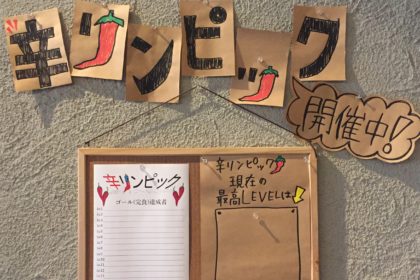 辛リンピック
開催中!
辛リンピック
ゴール(完食)達成者
辛リンピック
現在の
最高LEVELは